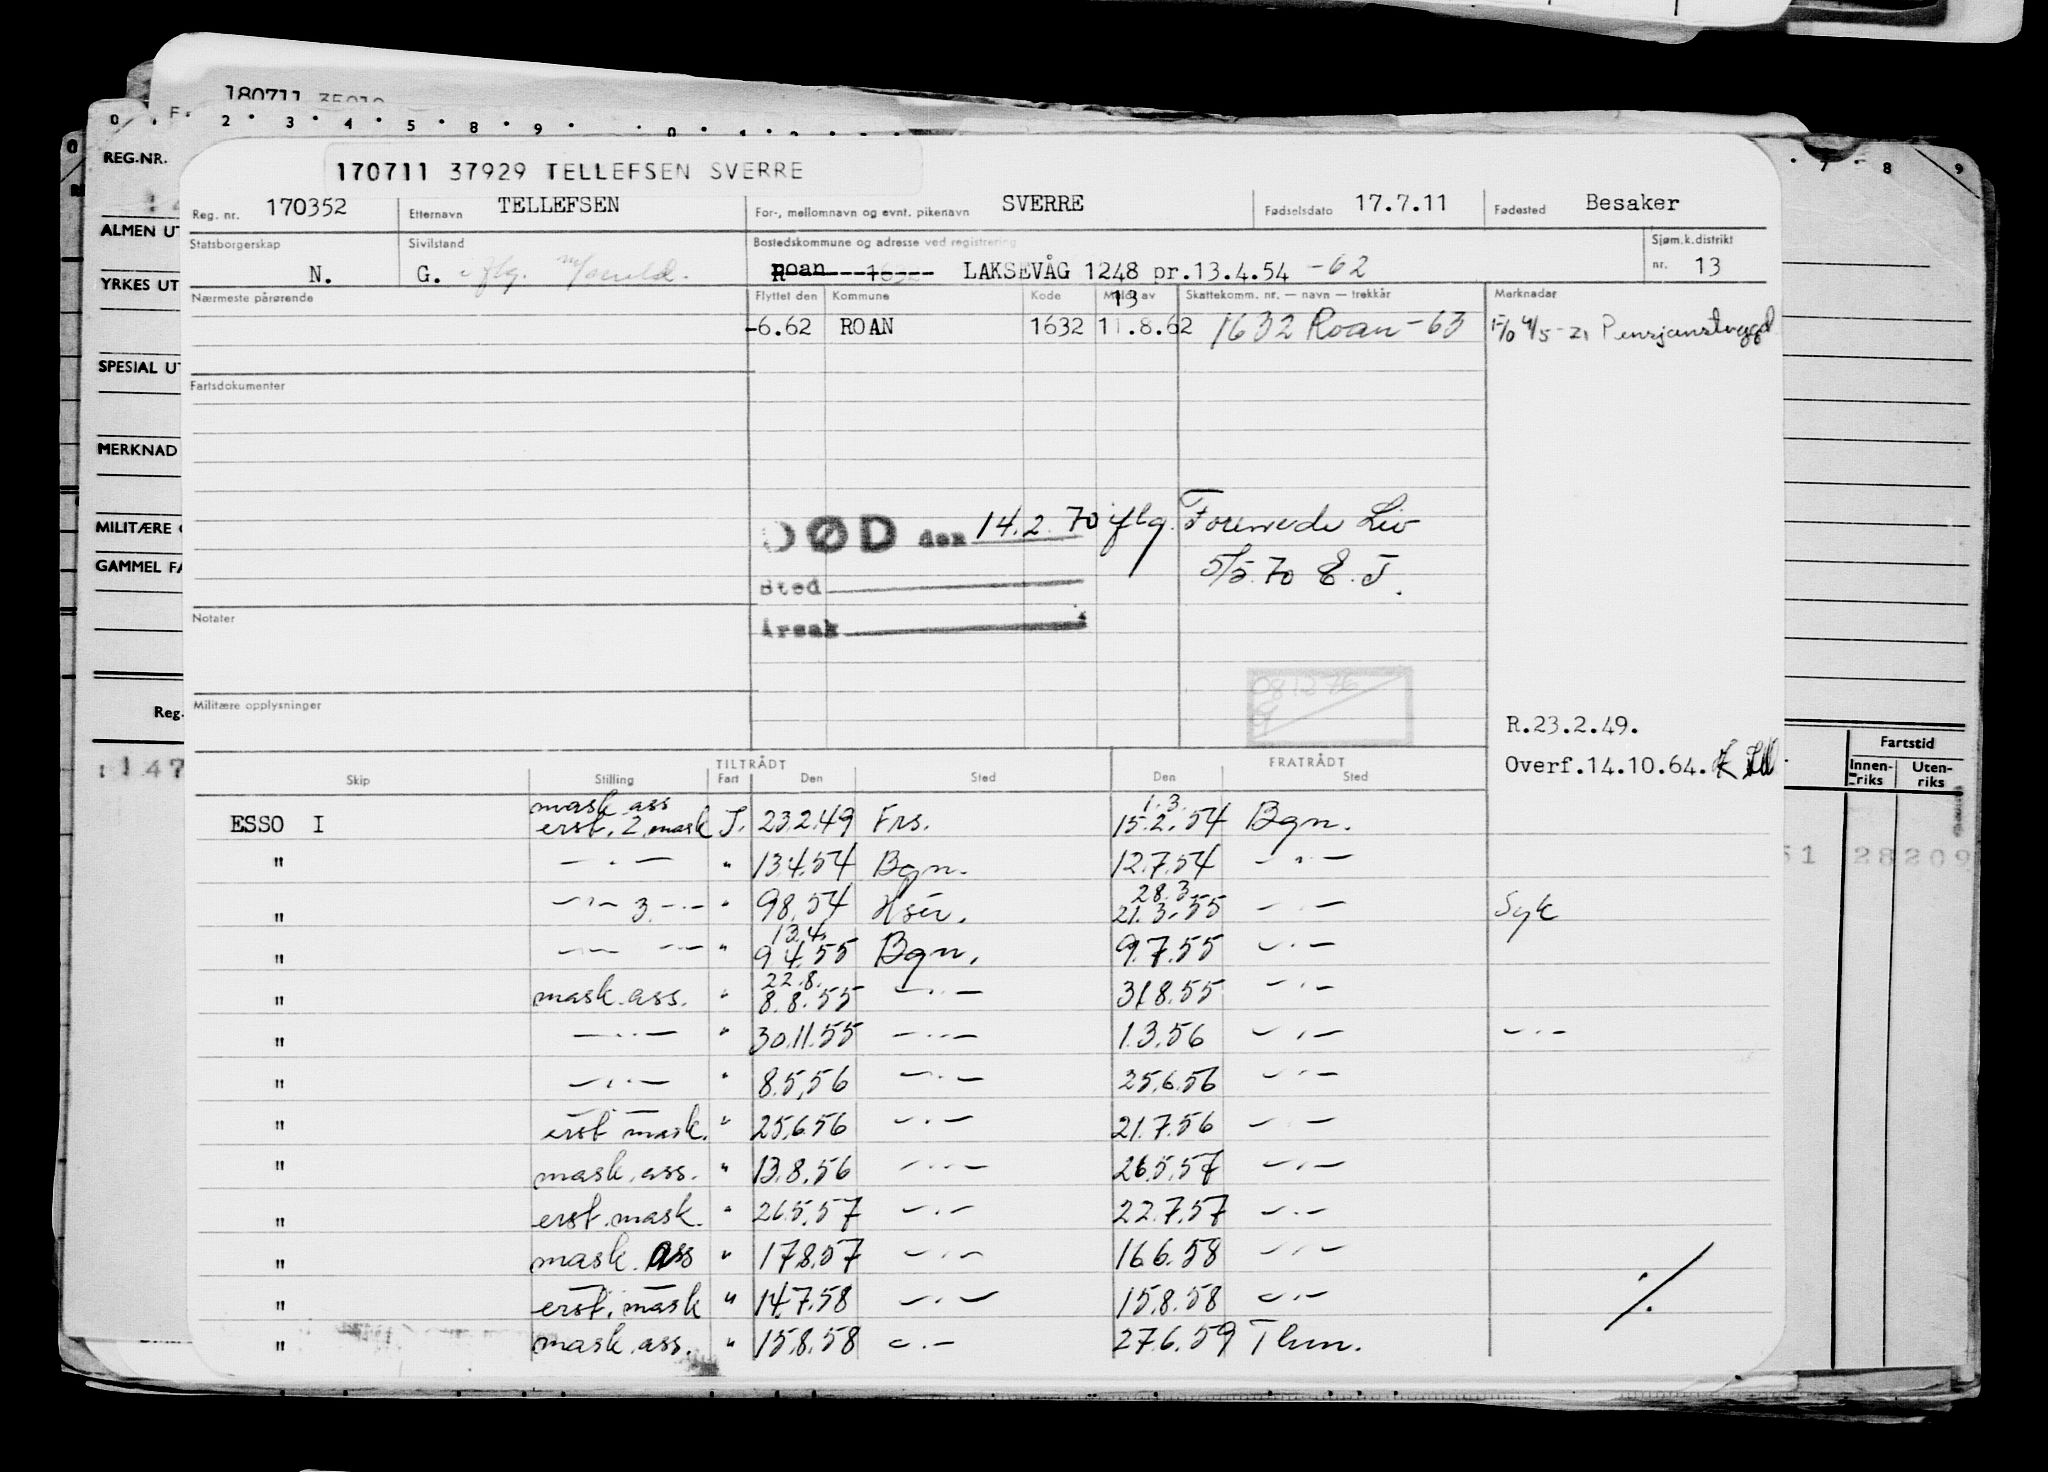 180711 35010
0 · 2 · 3 · 4 · 5 · 8 · 9 ·
7 · 8 9
REG.-NR.
ALMEN UT
YRKES UT
SPECIAL UT
MERKNAD
MILITÆRE
GAMMEL FA
Reg.
147
170711 37929 TELLEFSEN SVERRE
Reg. nr. 170352 Etternavn TELLEFSEN For-, mellomnavn og evnt. pikenavn SVERRE Fødselsdato 17.7.11 Fødested Besaker
Statsborgerskap N. Sivilstand G. Bostedskommune og adresse ved registrering Roan 1632 LAKSEVÅG 1248 pr.13.4.54 -62 Sjøm.k.distrikt nr. 13
Nærmeste pårørende Flyttet den Kommune Kode Meldt av Skattekomm. nr. — navn — trekkår Merknader
13
-6.62 ROAN 1632 11.8.62 1632 Roan -63 Pensjonstrygd
Fartsdokumenter
DØD den 14.2.70 iflg. Forenede Liv
Sted 5/5.70 E.J.
Årsak
Notater
Militære opplysninger
R.23.2.49.
Overf.14.10.64.
Fartstid
Innen-riks Uten-riks
51 28209
TILTRÅDT FRATRÅDT
Skip Stilling Fart Den Sted Den Sted
mask ass 1.3.
ESSO I erst. 2 mask J. 23.2.49 Frs. 15.2.54 Bgn.
" — " — " 13.4.54 Bgn. 12.7.54 — " —
28.3.
" — " — 3. — " — " 9.8.54 Hsir. 21.3.55 — " — Syk
13.4.
" — — — " — " 9.4.55 Bgn. 9.7.55 — " —
22.8.
" mask.ass. " 8.8.55 — " — 31.8.55 — " —
" — " — " 30.11.55 — " — 1.3.56 — " — — " —
" — " — " 8.5.56 — " — 25.6.56 — " —
" erst mask. " 25.6.56 — " — 21.7.56 — " —
" mask.ass. " 13.8.56 — " — 26.5.57 — " —
" erst.mask. " 26.5.57 — " — 22.7.57 — " —
" mask.ass " 17.8.57 — " — 16.6.58 — " —
" erst.mask " 14.7.58 — " — 15.8.58 — " —
" mask.ass. " 15.8.58 — " — 27.6.59 Thm.